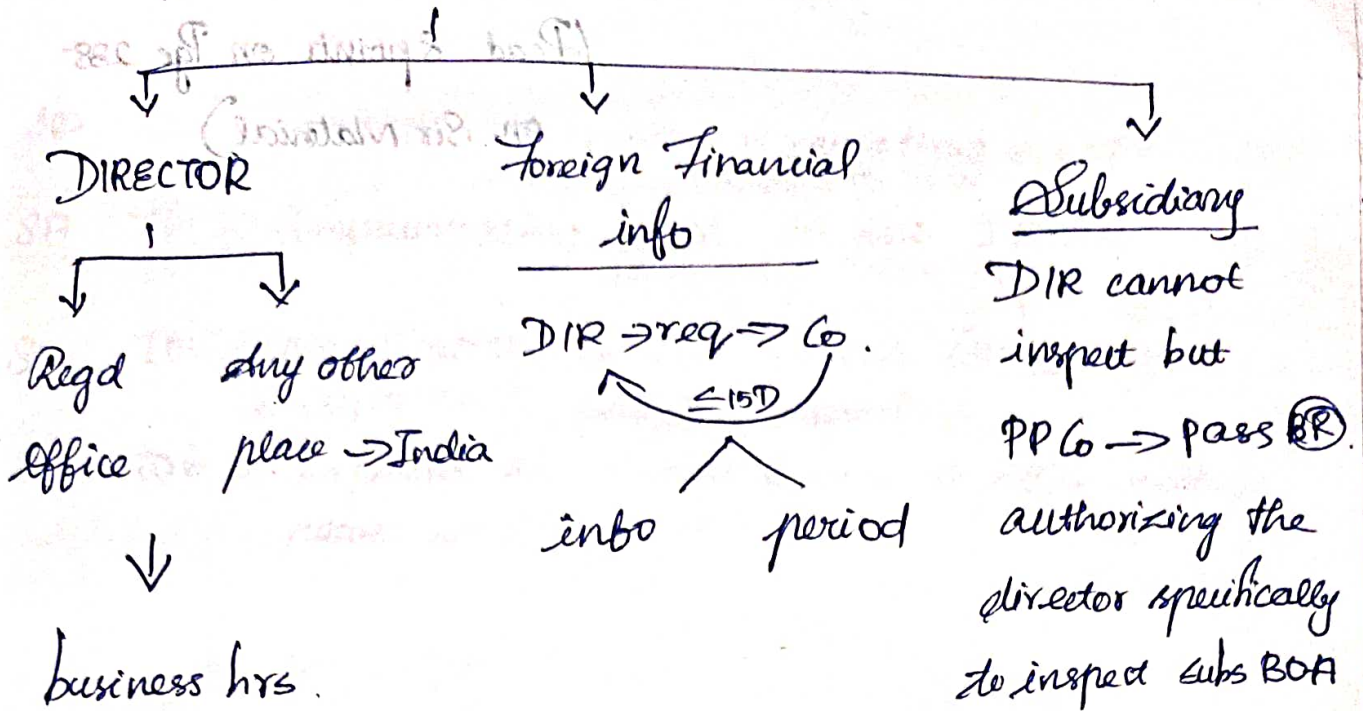 DIRECTOR
Regd office
Any other place → India
business hrs.
Foreign Financial
info
DIR → req → Co.
≤15D
info
period
Subsidiary
DIR cannot
inspect but
PP Co → pass BR.
authorizing the
director specifically
to inspect subs BOA